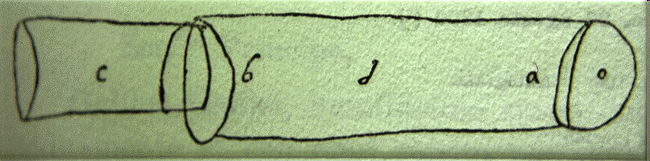 c b d a o